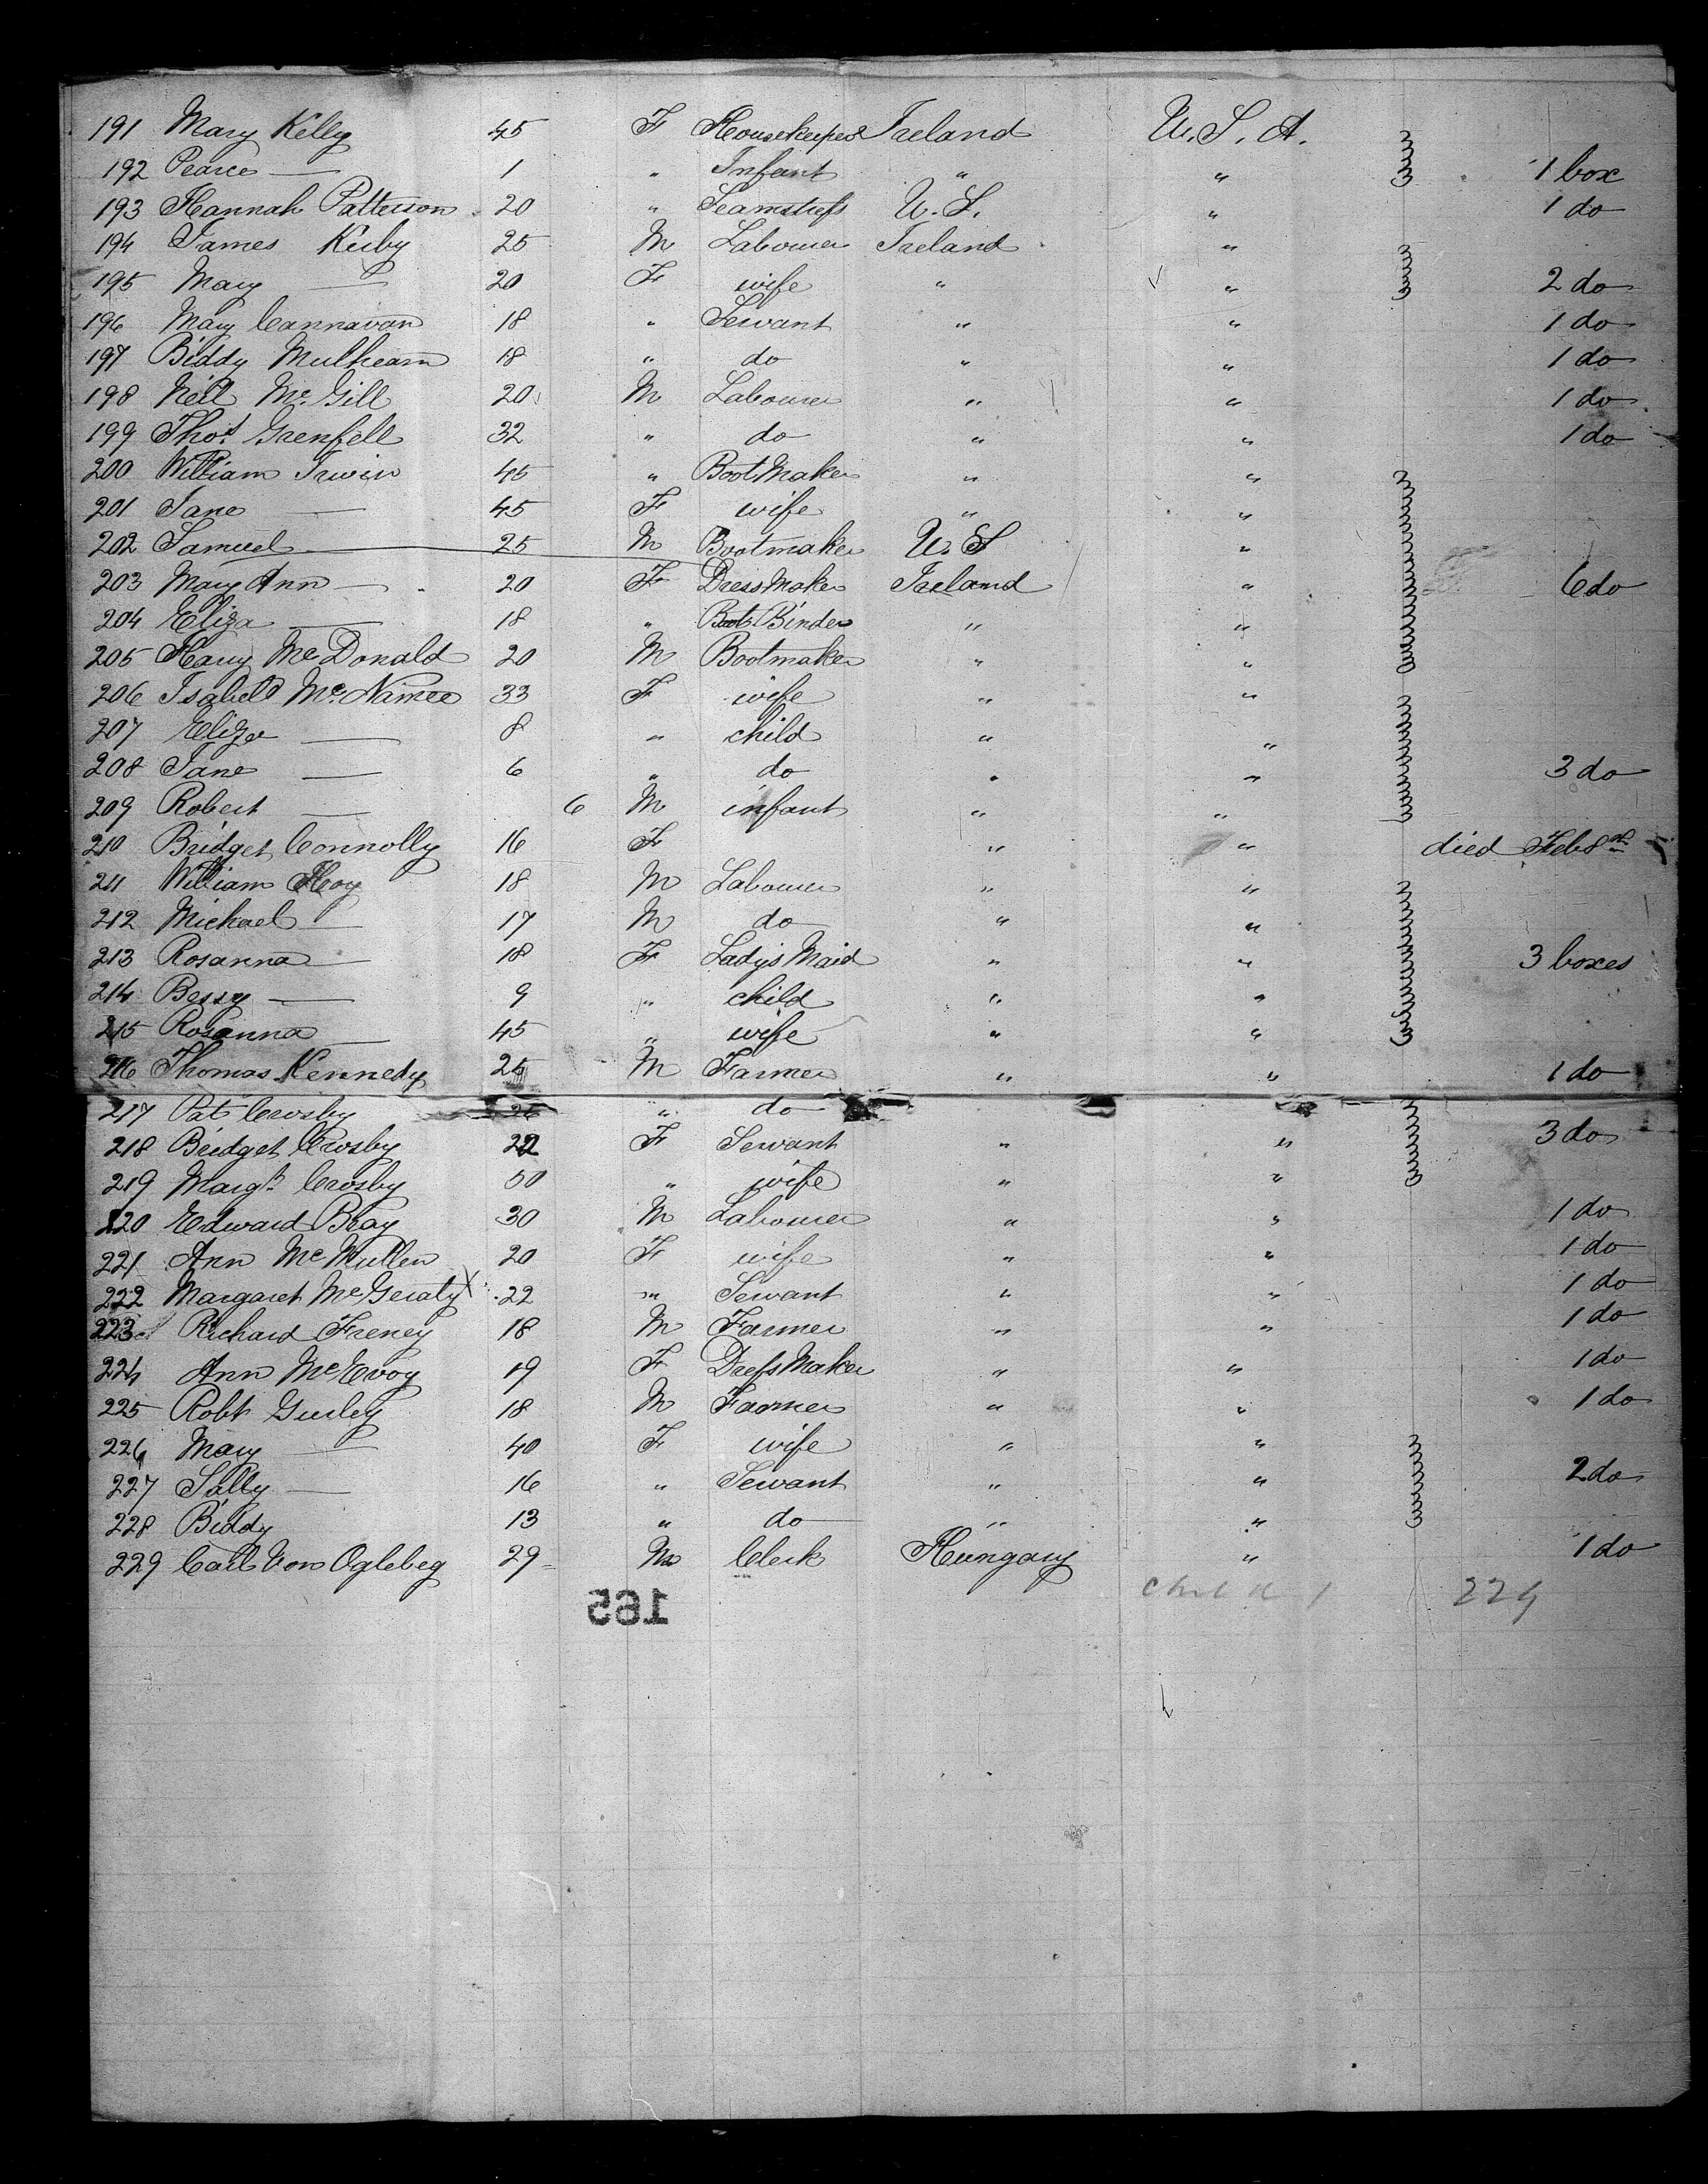 191 Mary Kelly 45 F Housekeeper Ireland U. S. A.
192 Pearce — 1 " Infant " " 1 box
193 Hannah Patterson 20 " Seamstress U. S. " 1 do
194 James Kirby 25 M Labourer Ireland "
195 Mary — 20 F wife " " 2 do
196 Mary Cannavan 18 " Servant " " 1 do
197 Biddy Mulhearn 18 " do " " 1 do
198 Neil Mc Gill 20 M Labourer " " 1 do
199 Thos Grenfell 32 " do " " 1 do
200 William Irwin 45 " Boot Maker " "
201 Jane — 45 F wife " "
202 Samuel — 25 M Bootmaker U. S "
203 Mary Ann — 20 F Dress Maker Ireland " 6 do
204 Eliza — 18 " Boot Binder " "
205 Harry Mc Donald 20 M Bootmaker " "
206 Isabell Mc Namee 33 F wife " "
207 Eliza — 8 " child " "
208 Jane — 6 " do " " 3 do
209 Robert — 6 M infant " "
210 Bridget Connolly 16 F " " died Feb 8th
211 William Hoy 18 M Labourer " "
212 Michael — 17 M do " "
213 Rosanna — 18 F Ladys Maid " " 3 boxes
214 Bessy — 9 " child " "
215 Rosanna — 45 " wife " "
216 Thomas Kennedy 25 M Farmer " " 1 do
217 Pat Crosby 26 " do
218 Bridget Crosby 22 F Servant " " 3 do
219 Margt Crosby 50 " wife " "
220 Edward Bray 30 M Labourer " " 1 do
221 Ann Mc Mullen 20 F wife " " 1 do
222 Margaret Mc Geraty X 22 " Servant " " 1 do
223 Richard Freney 18 M Farmer " " 1 do
224 Ann Mc Evoy 19 F Dress Maker " " 1 do
225 Robt Gurley 18 M Farmer " " 1 do
226 Mary — 40 F wife " "
227 Sally — 16 " Servant " " 2 do
228 Biddy 13 " do " "
229 Carl Von Oglebeg 29 M Clerk Hungary " 1 do
165 229